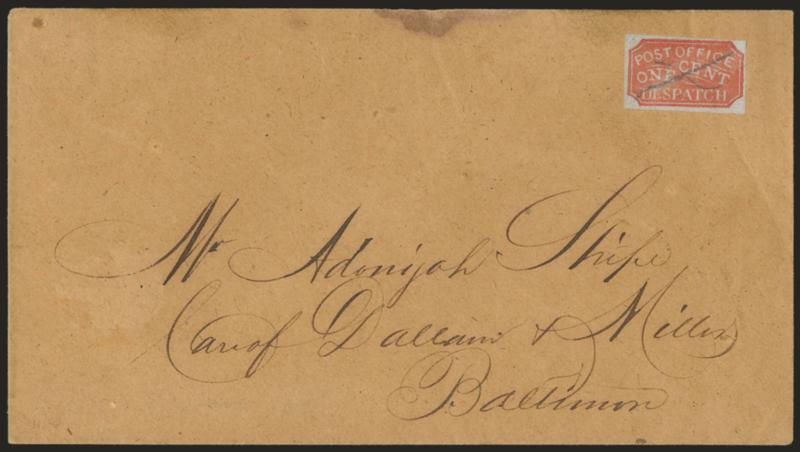 POST OFFICE
ONE CENT
DESPATCH
Mr Adonijah Stife
Care of Dallam & Miller
Baltimore